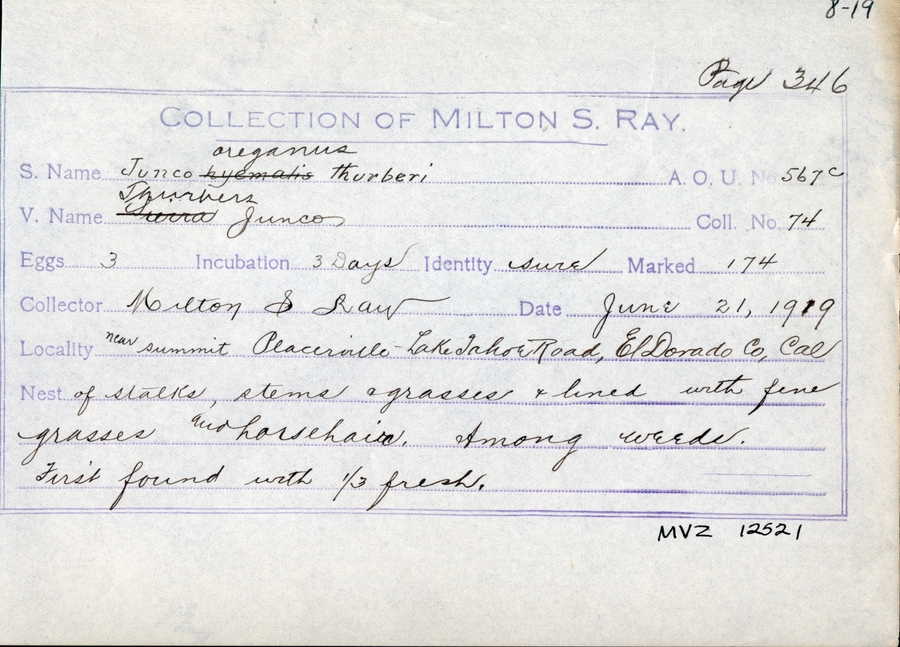 8-19
Page 346
COLLECTION OF MILTON S. RAY.
oreganus
S. Name Junco hyemalis thurberi A. O. U. No 567c
Thurbers
V. Name Sierra Junco Coll. No. 74
Eggs 3 Incubation 3 Days Identity sure Marked 174
Collector Milton S Ray Date June 21, 1919
Locality near summit Placerville-Lake Tahoe Road, El Dorado Co, Cal
Nest of stalks, stems & grasses & lined with fine
grasses and horsehair. Among weeds.
First found with 1/3 fresh.
MVZ 12521